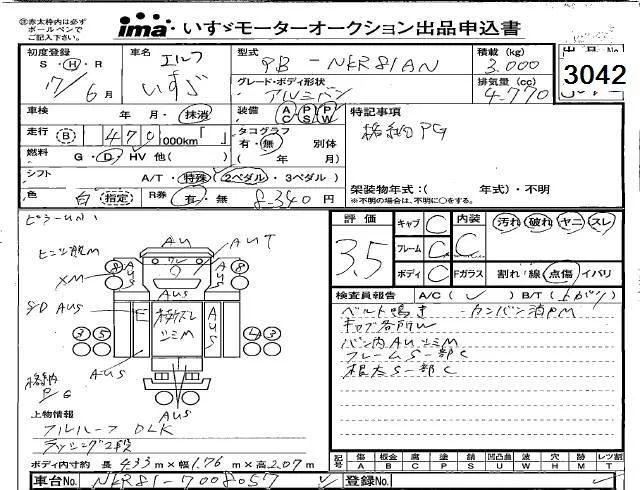 ㊟赤太枠内は必ず
ボールペンで
ご記入下さい。
ima いすゞモーターオークション出品申込書
初度登録 車名 エルフ 型式 PB - NKR81AN 積載 (kg) 3.000
S・H・R 17/6月 いすゞ グレード・ボディ形状 アルミバン 排気量 (cc) 4-770
3042
車検 年 月・抹消 装備 AC PS PW 特記事項
走行 B 470,000km「 」 タコグラフ 有・無 別体 格納PG
燃料 G・D・HV 他( ) ( 年 月)
シフト A/T・特殊(2ペダル・3ペダル) 架装物年式:( 年式)・不明
色 白 指定 R券 有・無 8-340円 ※不明の場合は、不明に○をする。
評価 3.5 キャブ C 内装 C 汚れ・破れ・ヤニ・スレ
フレーム C
ボディ C Fガラス 割れ・線・点傷・イバリ
検査員報告 A/C( ✓ ) B/T(上がり)
ベルト鳴き カンバン消PM
キャブ各所U
バン内AUシミM
フレームS一部C
根太S一部C
AU
AUT
XM
8
8
AUS
AUS
AUS
SD AUS
E
シミM
AUS
3 5
4 3
AUS
AUS
格納
P/G
上物情報
フルハーフ DLK
ラッシング2段
ボディ内寸約 長 4.33 m×幅 1.76 m×高 2.07 m
記号 傷 板金 腐 塗 錆 凹凸曲 波 穴 跡 レツ割
A B C P S U W H M T
車台No. NKR81-7008057 ✓ 登録No. ✓